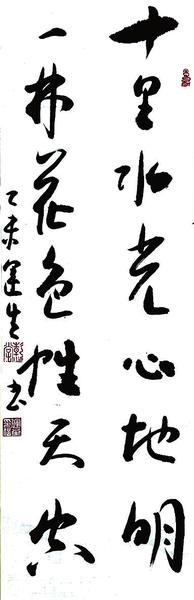 十里水光心地明
一林花色性天空
乙未生书